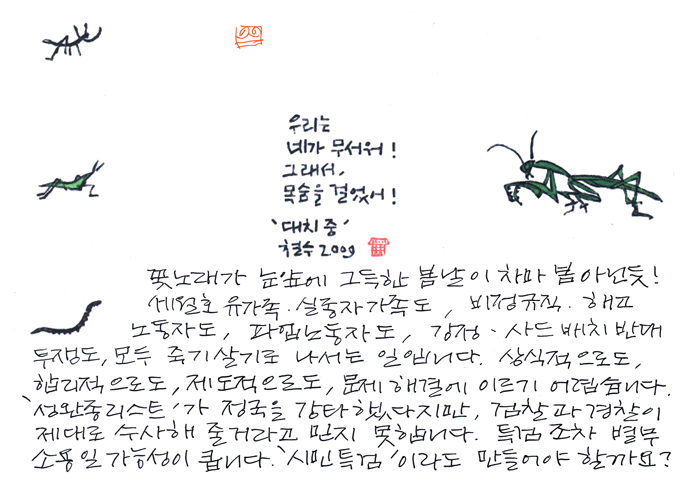 우리는
네가 무서워!
그래서,
목숨을 걸었어!
'대치 중'
철수 2009
꽃노래가 눈앞에 그득한 봄날이 차마 봄 아닌듯!
세월호 유가족·실종자가족도, 비정규직·해고
노동자도, 파업노동자도, 강정·사드 배치 반대
투쟁도, 모두 죽기살기로 나서는 일입니다. 상식적으로도,
합리적으로도, 제도적으로도, 문제 해결에 이르기 어렵습니다.
'성완종리스트'가 정국을 강타했다지만, 검찰과 경찰이
제대로 수사해 줄거라고 믿지 못합니다. 특검조차 별무
소용일 가능성이 큽니다. '시민특검'이라도 만들어야 할까요?